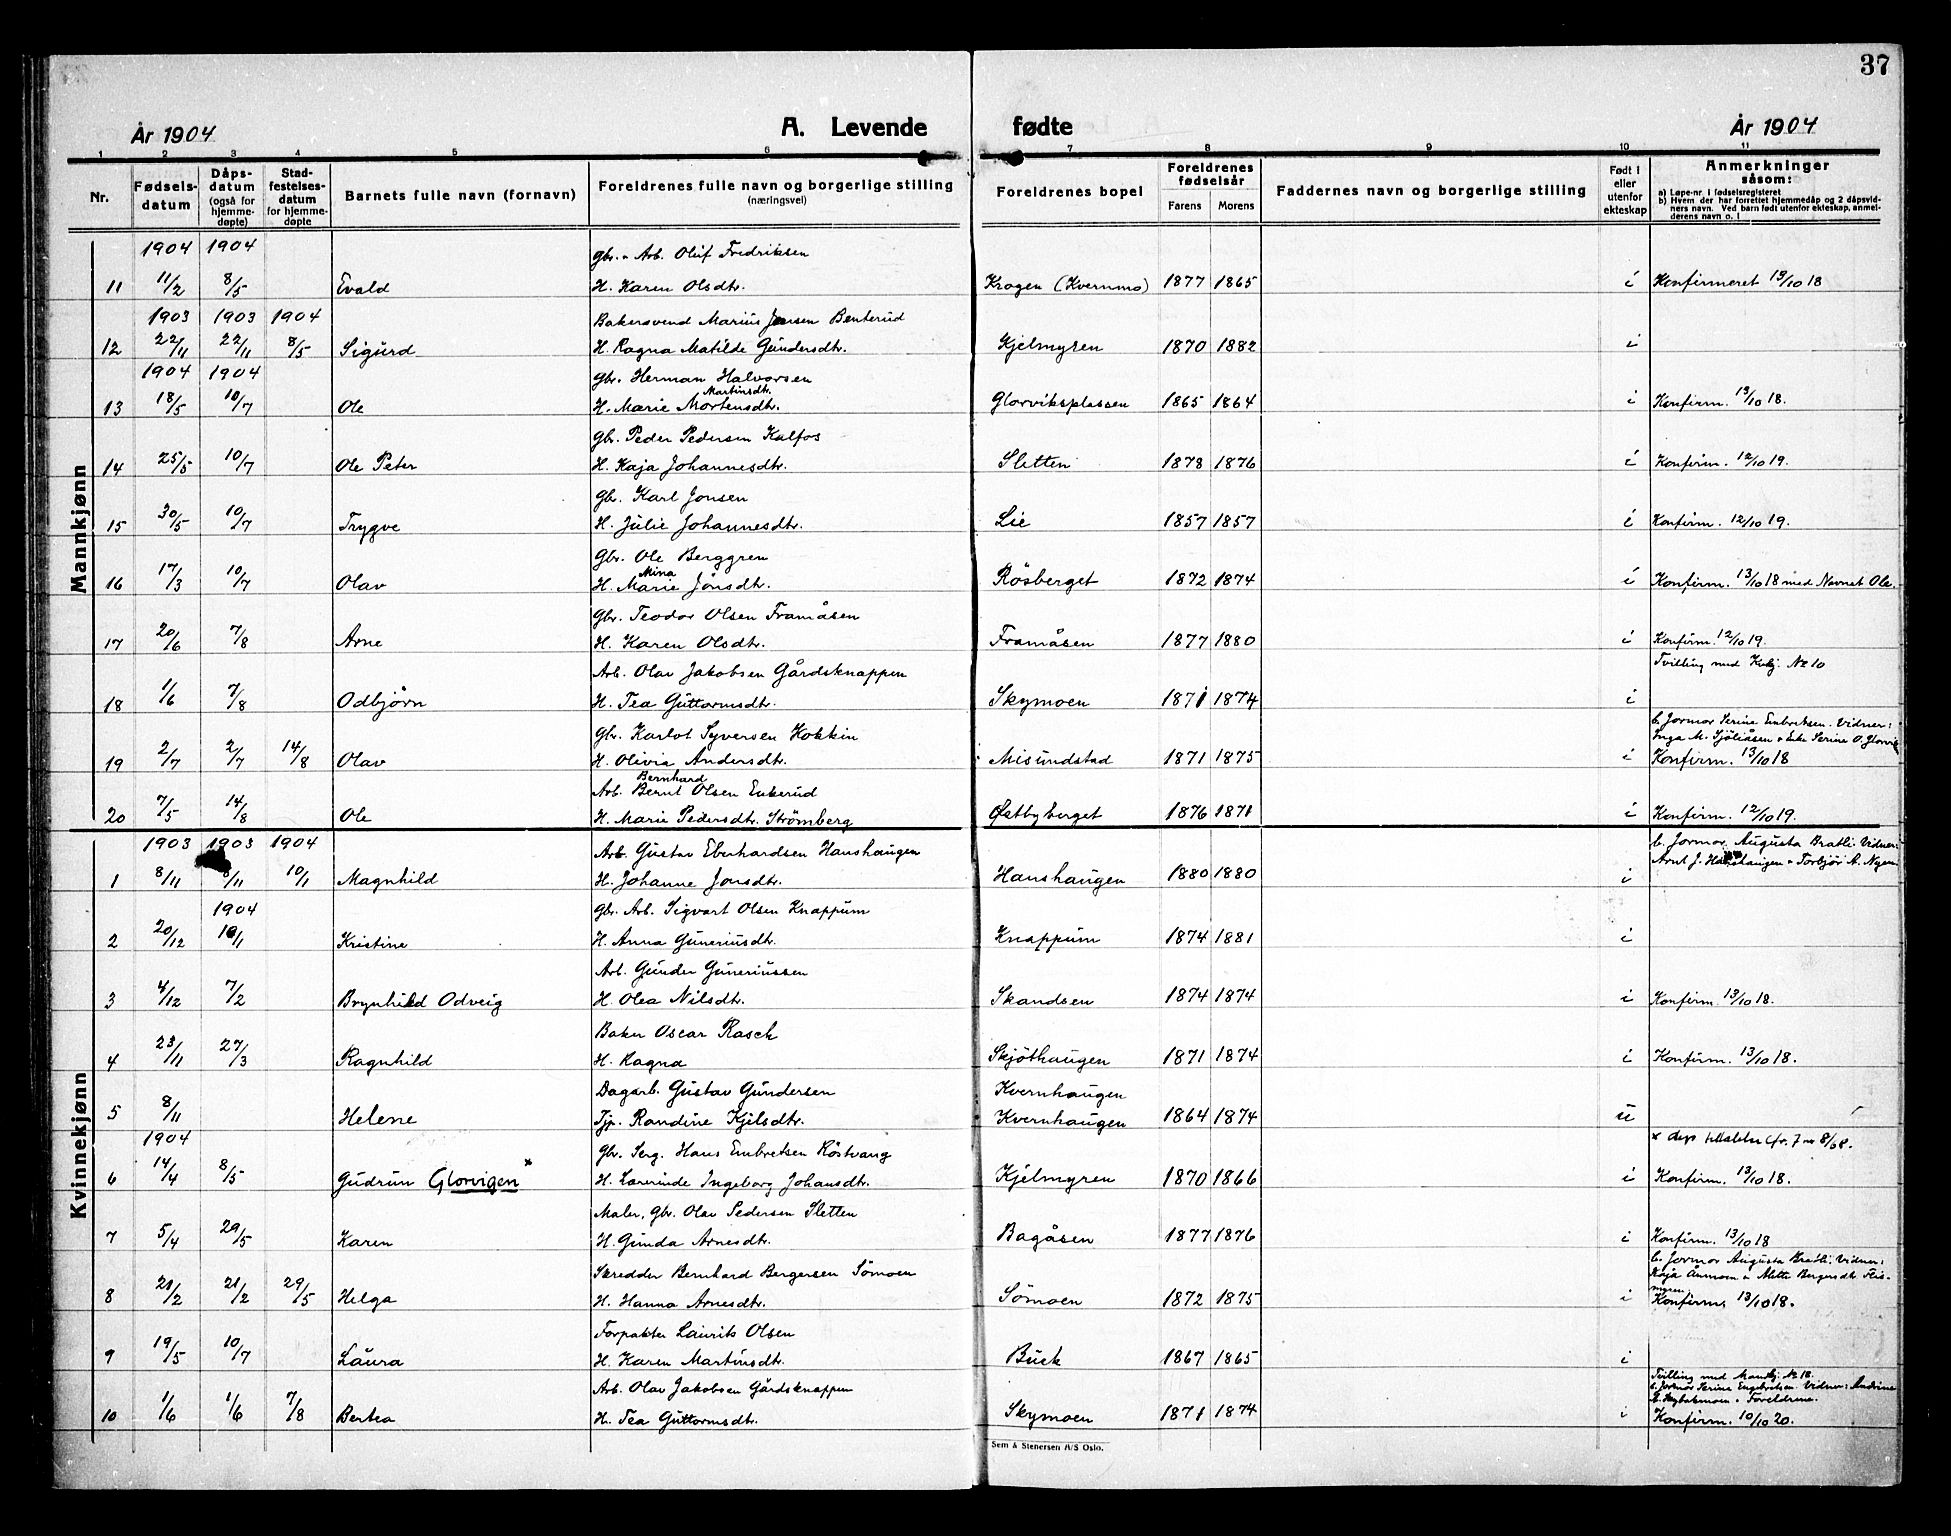 37
År 1904 A. Levende fødte År 1904
1 2 3 4 5 6 7 8 9 10 11
Nr. Fødsels-datum Dåps-datum (også for hjemme-døpte) Stad-festelses-datum for hjemme-døpte Barnets fulle navn (fornavn) Foreldrenes fulle navn og borgerlige stilling (næringsvei) Foreldrenes bopel Foreldrenes fødselsår Farens Morens Faddernes navn og borgerlige stilling Født i eller utenfor ekteskap Anmerkninger såsom:
a) Løpe-nr. i fødselsregisteret
b) Hvem der har forrettet hjemmedåp og 2 dåpsvid-
ners navn. Ved barn født utenfor ekteskap, anmel-
derens navn o. l
Mannkjønn
1904 1904 gbr. - Arb. Oluf Fredriksen
11 11/2 8/5 Evald H. Karen Olsdtr. Krogen (Kvernmo) 1877 1865 i Konfirmeret 13/10 18
1903 1903 1904 Bakersvend Marius Jensen Benterud
12 22/11 22/11 8/5 Sigurd H. Ragna Matilde Gundersdtr. Kjelmyren 1870 1882 i
1904 1904 gbr. Herman Halvorsen
Martinsdtr.
13 18/5 10/7 Ole H. Marie Mortensdtr. Glorviksplassen 1865 1864 i Konfirm. 13/10 18.
gbr. Peder Pedersen Kalfos
14 25/5 10/7 Ole Peter H. Kaja Johannesdtr. Sletten 1878 1876 i Konfirm. 12/10 19.
gbr. Karl Jonsen
15 30/5 10/7 Trygve H. Julie Johannesdtr. Lie 1857 1857 i Konfirm. 12/10 19.
Gbr. Ole Berggren
Mina
16 17/3 10/7 Olav H. Marie Jönsdtr. Rösberget 1872 1874 i Konfirm. 13/10 18 med Navnet Ole.
gbr. Teodor Olsen Framåsen
17 20/6 7/8 Arne H. Karen Olsdtr. Framåsen 1877 1880 i Konfirm. 12/10 19.
Arb. Olav Jakobsen Gårdsknappen Tvilling med Kvkj. No 10
18 1/6 7/8 Odbjørn H. Tea Guttormsdtr. Skymoen 1871 1874 i
gbr. Karlot Syversen Hokkin b. Jormor Serine Embretsen. Vidner:
Inga M. Sjöliåsen + Enke Serine O. Glorvik
19 2/7 2/7 14/8 Olav H. Olivia Andersdtr. Misundstad 1871 1875 i Konfirm. 13/10 18
Bernhard
Arb. Bernt Olsen Enkerud
20 7/5 14/8 Ole H. Marie Pedersdtr. Strömberg Østbyberget 1876 1871 i Konfirm. 12/10 19.
Kvinnekjønn
1903 1903 1904 Arb. Gustav Eberhardsen Hanshaugen b. Jormor Augusta Bratli. Vidner:
Arnt J. Hanshaugen + Torbjör A. Nyen
1 8/11 8/11 10/1 Magnhild H. Johanne Jonsdtr. Hanshaugen 1880 1880 i
1904 gbr. Arb. Sigvart Olsen Knappum
2 20/12 10/1 Kristine H. Anna Guneriusdtr. Knappum 1874 1881 i
Arb. Gunder Guneriussen
3 4/12 7/2 Brynhild Odveig H. Olea Nilsdtr. Skandsen 1874 1874 i Konfirm. 13/10 18.
Baker Oscar Rasch
4 23/11 27/3 Ragnhild H. Ragna Skjöthaugen 1871 1874 i Konfirm. 13/10 18.
Dagarb. Gustav Gundersen Kvernhaugen
5 8/11 Helene Tjp. Randine Kjelsdtr. Kvernhaugen 1864 1874 u
1904 Gbr. Serg. Hans Embretsen Röstvang x deps tillatelse
6 14/4 8/5 Gudrun Glorvigen x H. Laurinde Ingeborg Johansdtr. Kjelmyren 1870 1866 i Konfirm. 13/10 18.
Maler, gbr. Olav Pedersen Sletten
7 5/4 29/5 Karen H. Gunda Arnesdtr. Bagåsen 1877 1876 i Konfirm. 13/10 18
Skredder Bernhard Bergersen Sömoen b. Jormor Augusta Bratli. Vidner:
Kaja Ånmoen + Mette Bergersdtr. Flis-
myren.
8 21/2 21/2 29/5 Helga H. Hanna Arnesdtr. Sömoen 1872 1875 i Konfirm. 13/10 18.
Forpakter Laurits Olsen
9 19/5 10/7 Laura H. Karen Martinsdtr. Buck 1867 1865 i
Arb. Olav Jakobsen Gårdsknappen Tvilling med Mankj. No 18.
b. Jormor Serine Engebretsen. Vidner: Andrine
Foreldrene.
10 1/6 1/6 7/8 Bertea H. Tea Guttormsdtr. Skymoen 1871 1874 i Konfirm. 10/10 20.
Sem & Stenersen A/S Oslo.